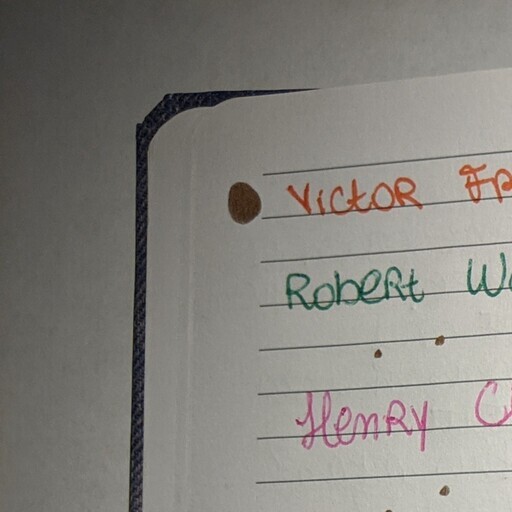 Victor Fr
Robert Wa
Henry C